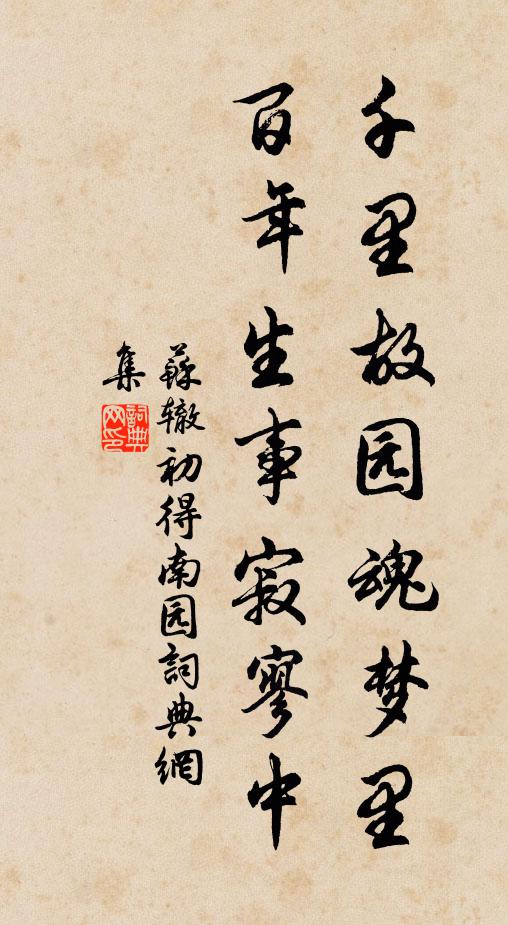 千里故园魂梦里
百年生事寂寥中
蘇辙初得南园詞典網
集
詞典网印